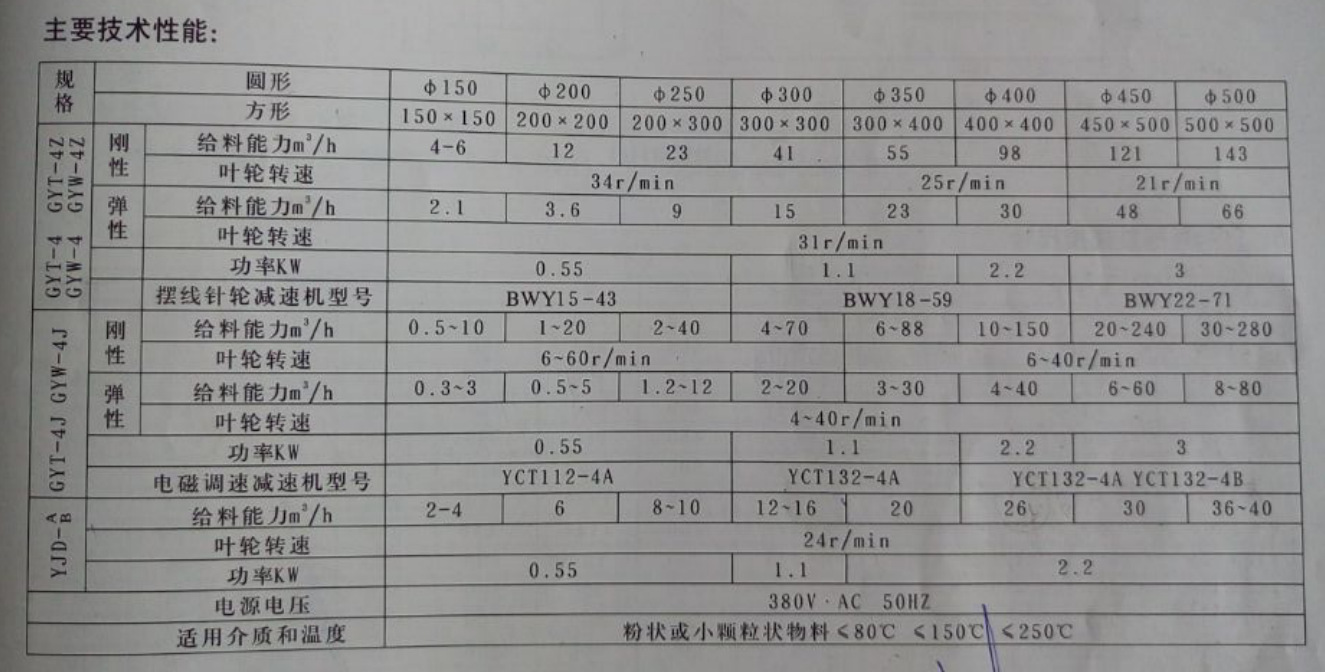 主要技术性能:
规格 圆形 φ150 φ200 φ250 φ300 φ350 φ400 φ450 φ500
方形 150×150 200×200 200×300 300×300 300×400 400×400 450×500 500×500
GYT-4 GYT-4Z
GYW-4 GYW-4Z
刚性 给料能力m³/h 4-6 12 23 41 55 98 121 143
叶轮转速 34r/min 25r/min 21r/min
弹性 给料能力m³/h 2.1 3.6 9 15 23 30 48 66
叶轮转速 31r/min
功率KW 0.55 1.1 2.2 3
摆线针轮减速机型号 BWY15-43 BWY18-59 BWY22-71
GYT-4J GYW-4J
刚性 给料能力m³/h 0.5~10 1~20 2~40 4~70 6~88 10~150 20~240 30~280
叶轮转速 6~60r/min 6~40r/min
弹性 给料能力m³/h 0.3~3 0.5~5 1.2~12 2~20 3~30 4~40 6~60 8~80
叶轮转速 4~40r/min
功率KW 0.55 1.1 2.2 3
电磁调速减速机型号 YCT112-4A YCT132-4A YCT132-4A YCT132-4B
YJD-A B
给料能力m³/h 2-4 6 8~10 12~16 20 26 30 36~40
叶轮转速 24r/min
功率KW 0.55 1.1 2.2
电源电压 380V·AC 50HZ
适用介质和温度 粉状或小颗粒状物料≤80℃ ≤150℃ ≤250℃